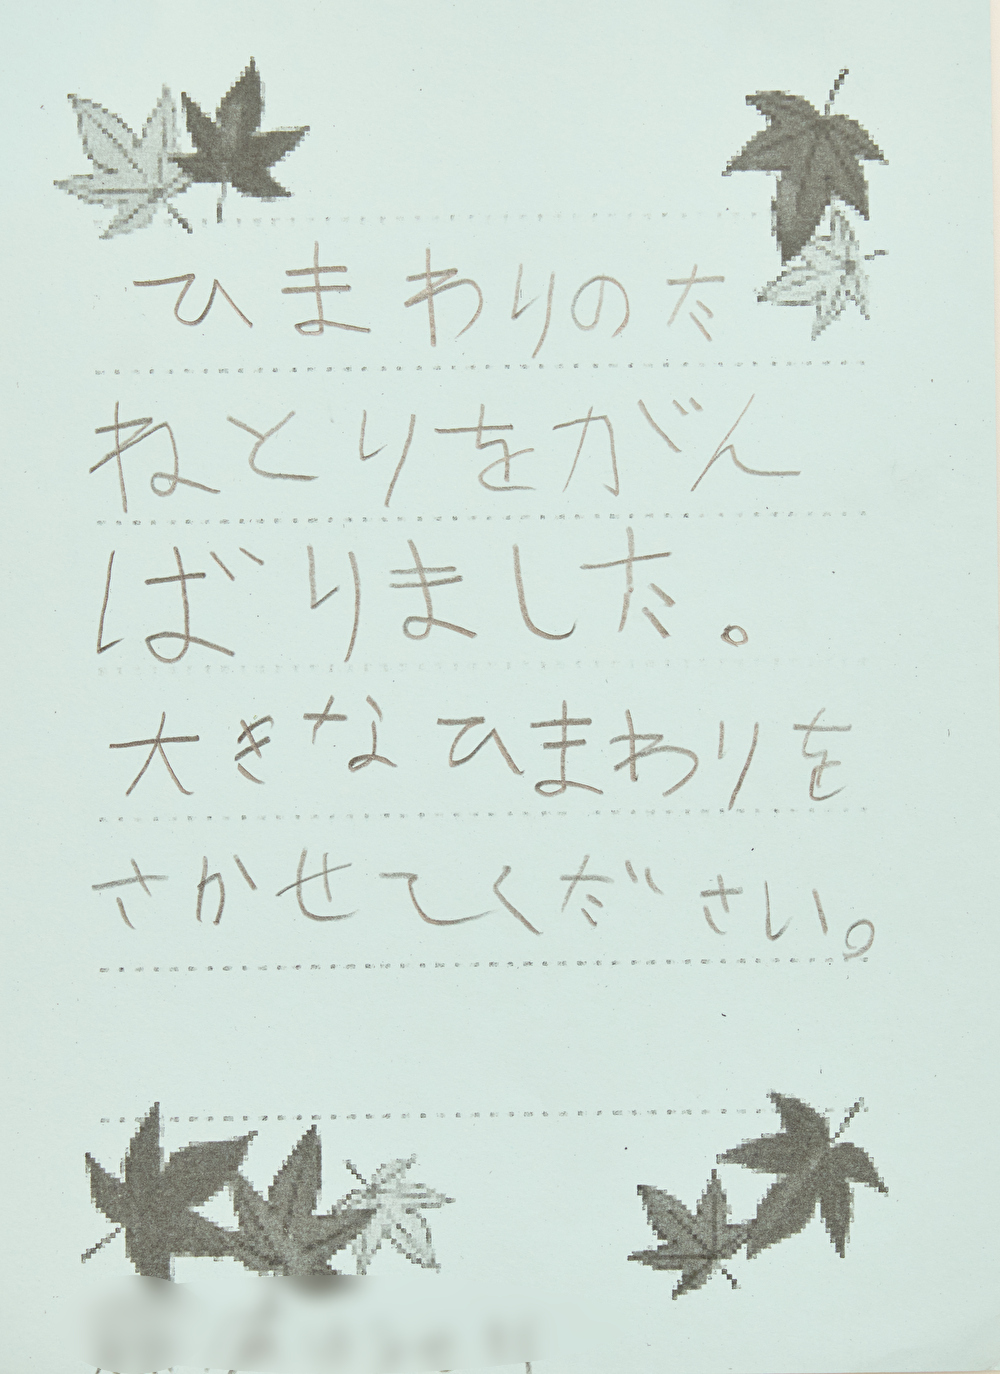 ひまわりのた
ねとりをがん
ばりました。
大きなひまわりを
さかせてください。